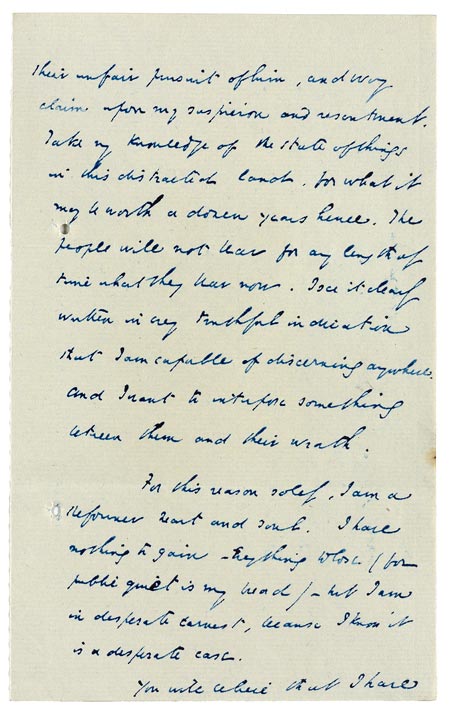 their unfair pursuit of him, and every
claim upon my suspicion and resentment.
Take my knowledge of the state of things
in this distracted land, for what it
may be worth a dozen years hence. The
people will not bear for any length of
time what they bear now. I see it clearly
written in every truthful indication
that I am capable of discerning anywhere.
And I want to interpose something
between them and their wrath.
For this reason solely, I am a
Reformer heart and soul. I have
nothing to gain – everything to lose (for
public quiet is my bread) – but I am
in desperate earnest, because I know it
is a desperate case.
You will believe that I have